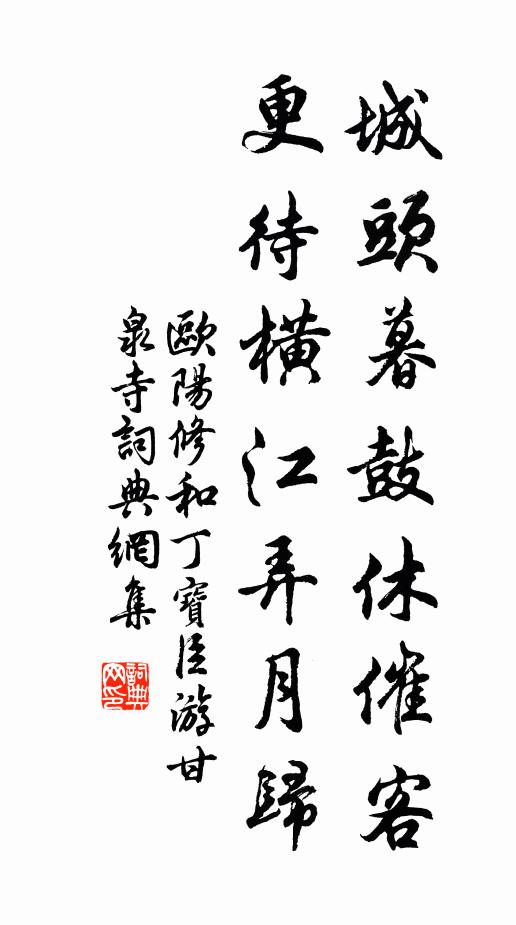 城頭暮鼓休催客
更待橫江弄月歸
歐陽修和丁寶臣游甘
泉寺詞典網集
詞典
网印